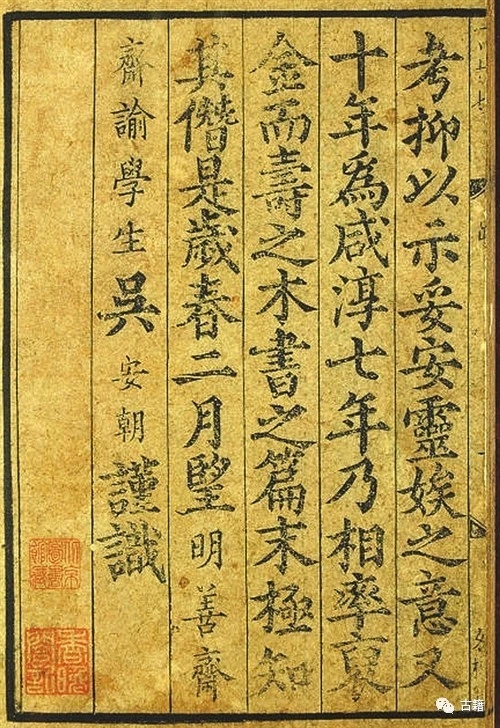 考抑以示妥安靈娭之意又
十年爲咸淳七年乃相率裒
金而壽之木書之篇末極知
其僭是歲春二月朢明善齋
齋諭學生吳安朝謹識
古籍